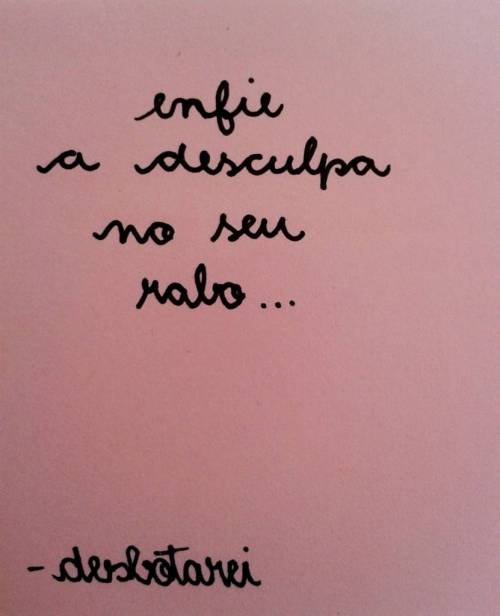 enfie
a desculpa
no seu
rabo...
- desbotarei